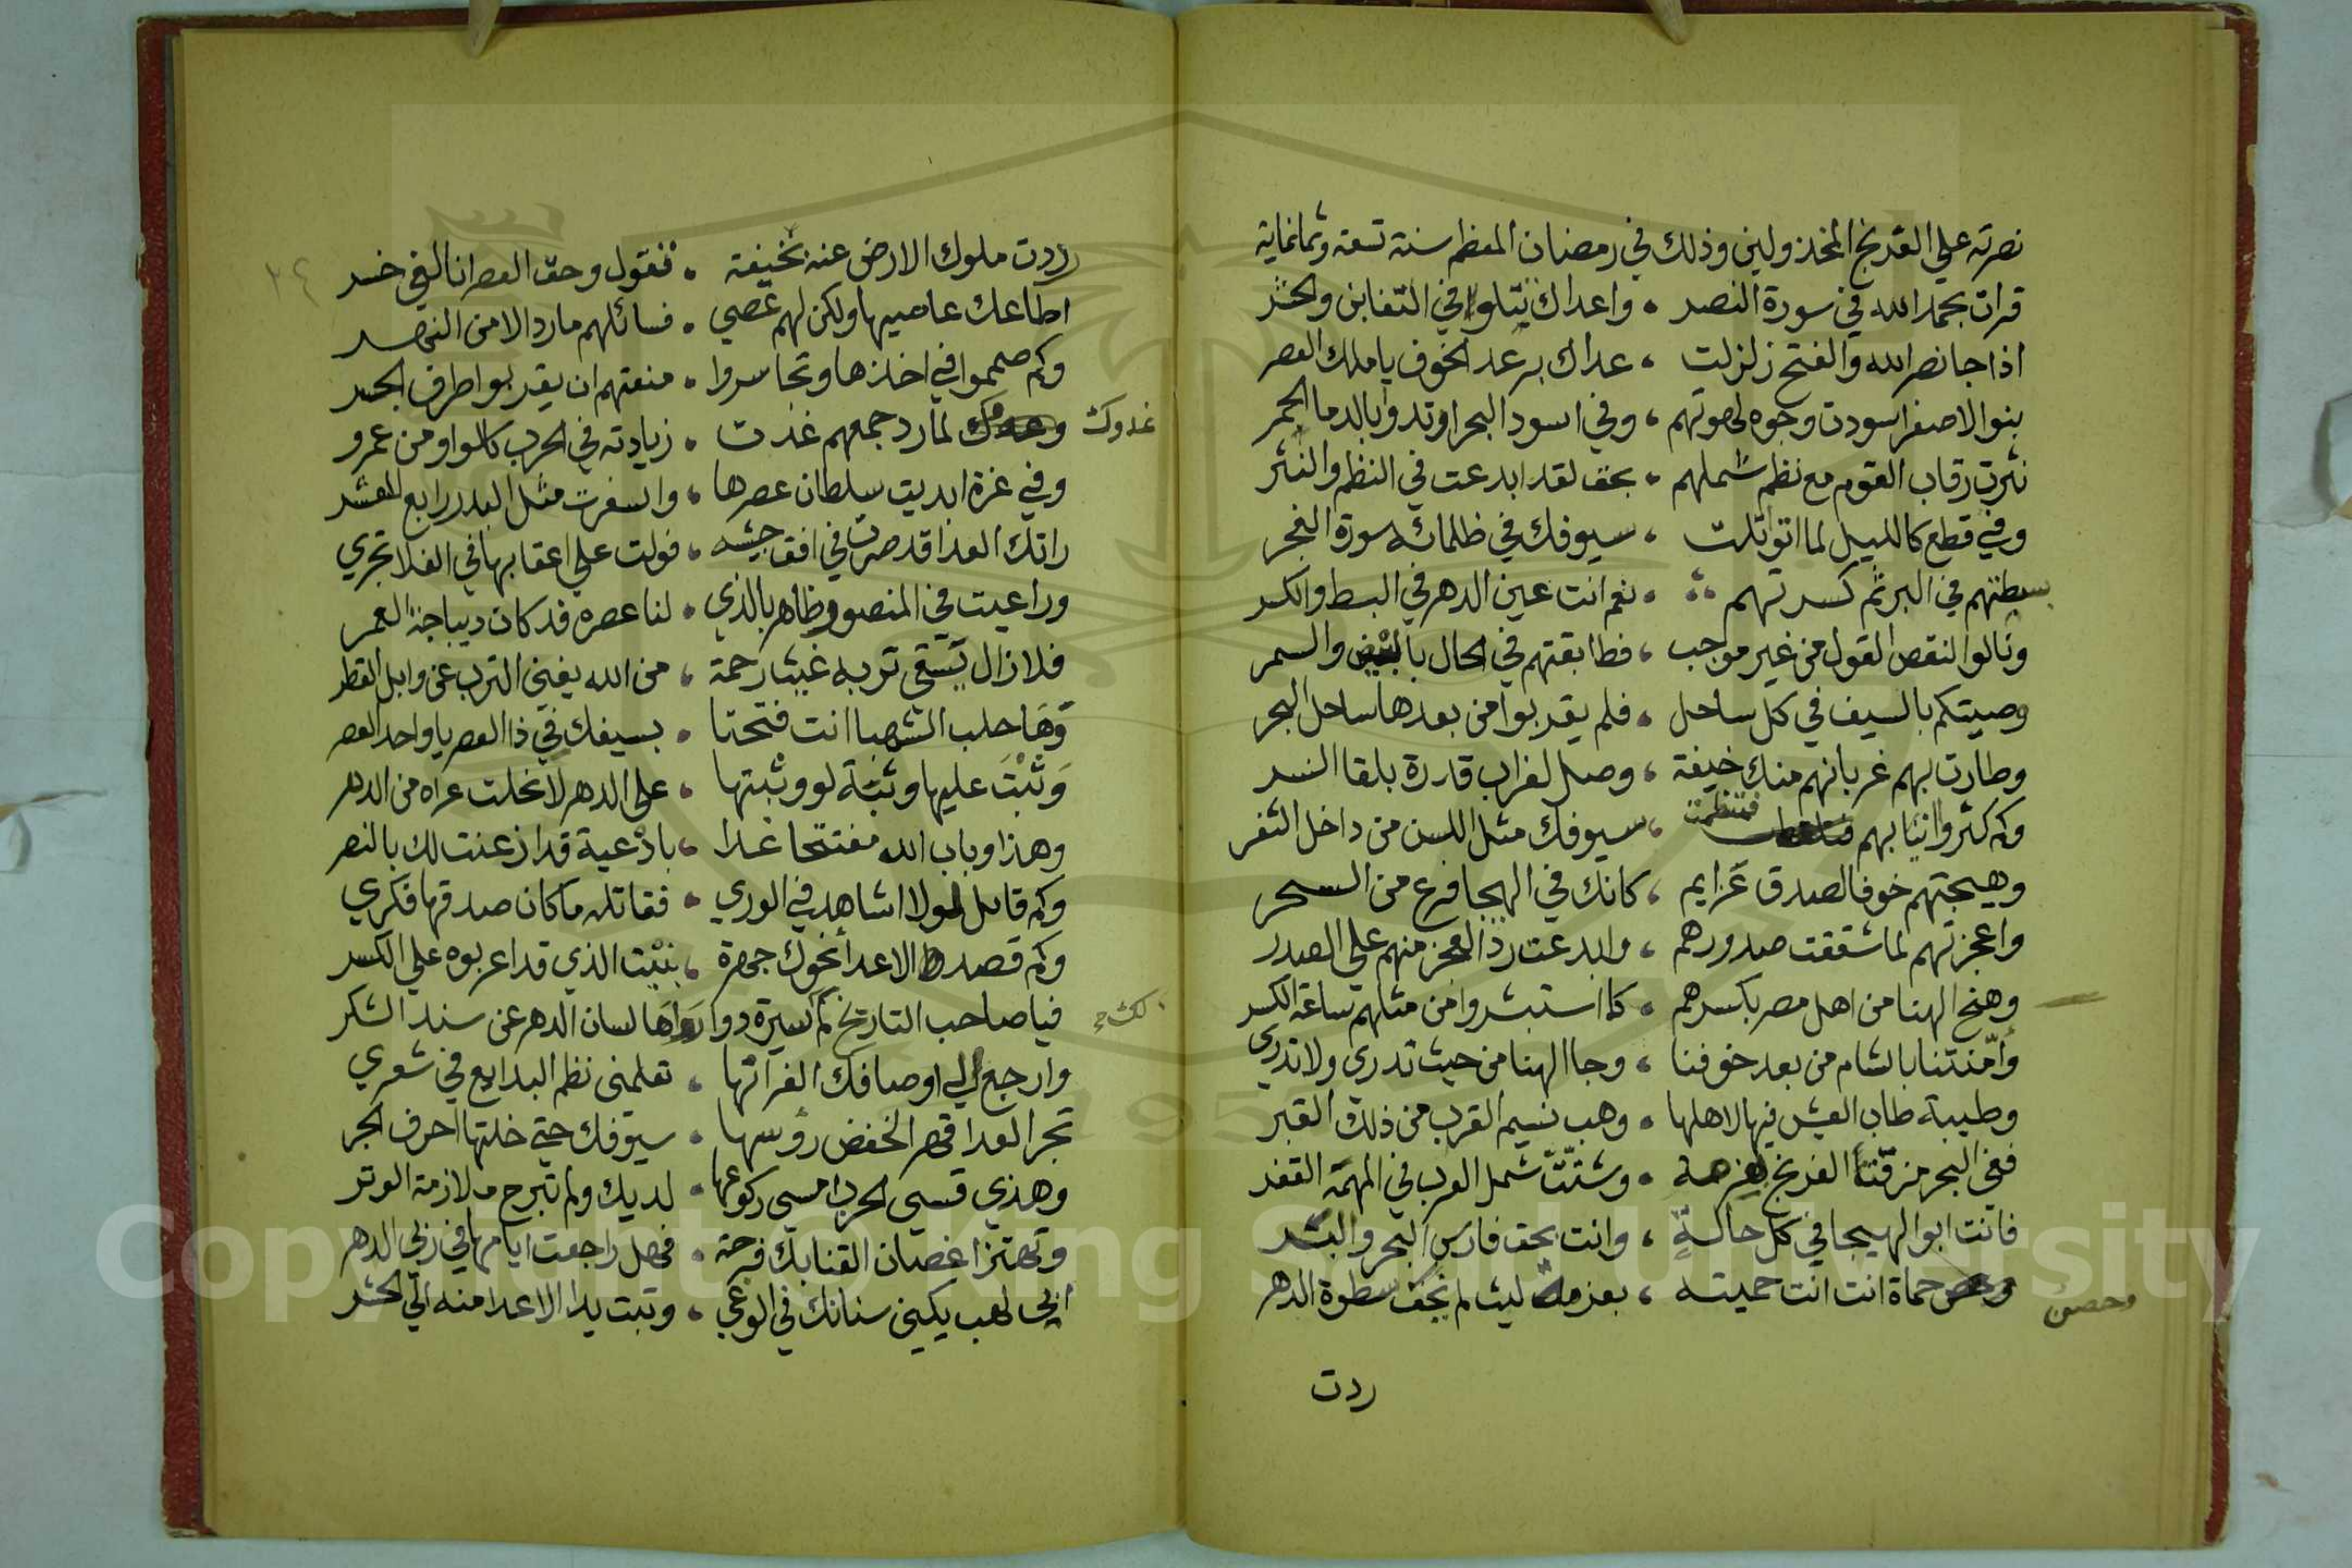 نصرته علي الفرنج المخذولين وذلك في رمضان المعظم سنة تسعة وثمانماية
قرات بحمد الله في سورة النصر . واعداك تتلوا في التغابن والحشر
اذا جا نصر الله والفتح زلزلت ، عداك برعد الخوف يا ملك العصر
بنوا الاصفر اسودت وجوه لموتهم ، وفي اسود البحر اوتدوا بالدما الحمر
نثرت رقاب القوم مع نظم شملهم . بحق لقد ابدعت في النظم والنثر
وفي قطع كالليل لما اتوا تلت ، سيوفك في ظلمائه سورة الفجر
بسطتهم في البر ثم كسرتهم . نعم انت عين الدهر في البسط والكسر
ونالوا لنقص القول من غير موجب ، فطابقتهم في الحال بالبيض والسمر
وصيتكم بالسيف في كل ساحل . فلم يقربوا من بعدها ساحل البحر
وطارت بهم غربانهم منك خيفة ، وصل لغراب قدرة بلقا النسر
وكم كشروا انيابهم فتنظمت ، سيوفك مثل اللسن من داخل الثغر
وهيجتهم خوفا لصدق عزايم ، كانك في الهيجا فرع من السحر
واعجزتهم لما شققت صدورهم ، وابدعت رد العجز منهم علي الصدر
وهنح الهنا من اهل مصر بكسرهم . كما استبشروا من مثلهم ساعة الكسر
وأمّنتنا بالشام من بعد خوفنا ، وجا الهنا من حيث تدري ولا تدري
وطيبة طاب العيش فيها لاهلها . وهب نسيم القرب من ذلك القبر
ففي البحر مزقت الفرنج بعزمة . وشتّتّ شمل العرب في المهمة القفر
فانت ابو الهيجا في كل حالةٍ ، وانت بحق فارس البحر والبر
وحصن حماة انت انت حميته ، بعزمة ليث لم تخف سطوة الدهر
وحصن
ردت
٢٤
رددت ملوك الارض عنه بخيفة . فنقول وحق العصر انا لفي خسر
اطاعك عاصيها ولكن لهم عصي . فسائلهم ما رد الا من النهر
وكم صمموا في اخذها وتجاسروا . منعتهم ان يقربوا طرف الجسر
لما رد جمعهم غدت . زيادته في الحرب كالواو من عمرو
غدوك
وفي غزة ابديت سلطان عصرها ، واسفرت مثل البدر رابع العشر
راتك العدا قد صرت في افق جيشه ، فولت علي اعقابها في الفلا تجري
وراعيت في المنصور ظاهر بالذي . لنا عصره قد كان ديباجة العمر
فلا زال يسقي تربه غيث رحمة ، من الله يغني الترب عن وابل القطر
وَهَا حلب الشهبا انت فتحتا . بسيفك في ذا العصر يا واحد العصر
وَثبْتَ عليها وثبَة لو وثبتها ، علي الدهر لانحلت عراه من الدهر
وهذا وباب الله مفتتحا غدا ، بادْعية قد اذعنت لك بالنصر
وكم قائل لولا اشاهد في الوري . فقاتله ما كان صدقها فكري
وكم قصد الاعدا نحوك جهرة ، بنيْت الذي قد اعربوه علي الكسر
فيا صاحب التاريخ كم سيرة روا لسان الدهر عن سند الشكر
وارجع الي اوصافك الغر انها ، تعلمني نظم البدايع في شعري
تجر العدا قهر الخفض رؤسها . سيوفك حتي خلتها احرف الجر
وهذي قسي الحرب امسي ركوعها . لديك ولم تبرح ملازمة الوتر
وتهتز اغصان القنا بك فرحة . فهل راجعت ايامها في ربي الدهر
ابي لهب يكني سنانك في الوغي ، وتبت يدا الاعدا منه الي الحشر
Copyright © King Saud University